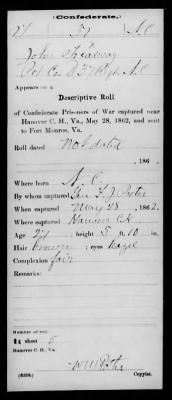 (Confederate.)
27 N.C
John
Pvt Co. D, 27 Regt N.C
Appears on a
Descriptive Roll
of Confederate Prisoners of War captured near
Hanover C. H., Va., May 28, 1862, and sent
to Fort Monroe, Va.
Roll dated
Not dated
, 186 .
Where born N.C.
By whom captured Gen F. J. Porter
When captured May 28, 1862.
Where captured Hanover C.H.
Age 27; height 5 ft. 10 in.
Hair brown; eyes hazel
Complexion fair
Remarks:
Number of roll:
sheet 5
Hanover C. H. Va.
Copyist.